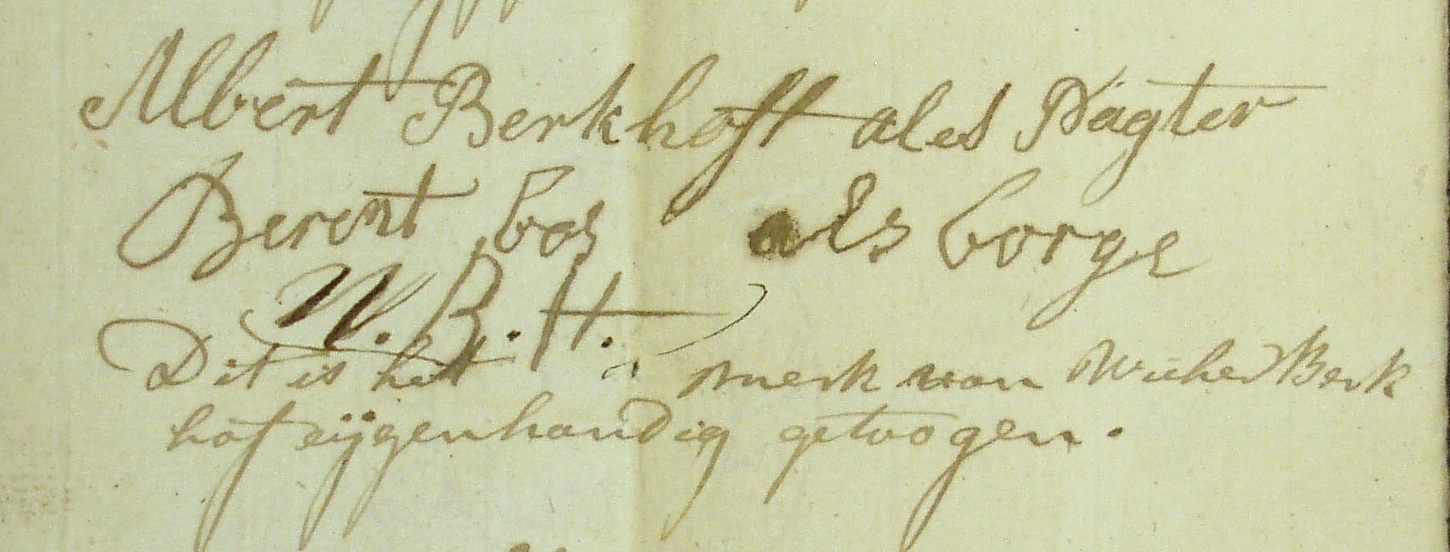 Albert Berkhoff als Pagter
Berent bos als borge
W. B. H.
Dit is het merk van Wicher Berk
hof eijgenhandig getoogen.